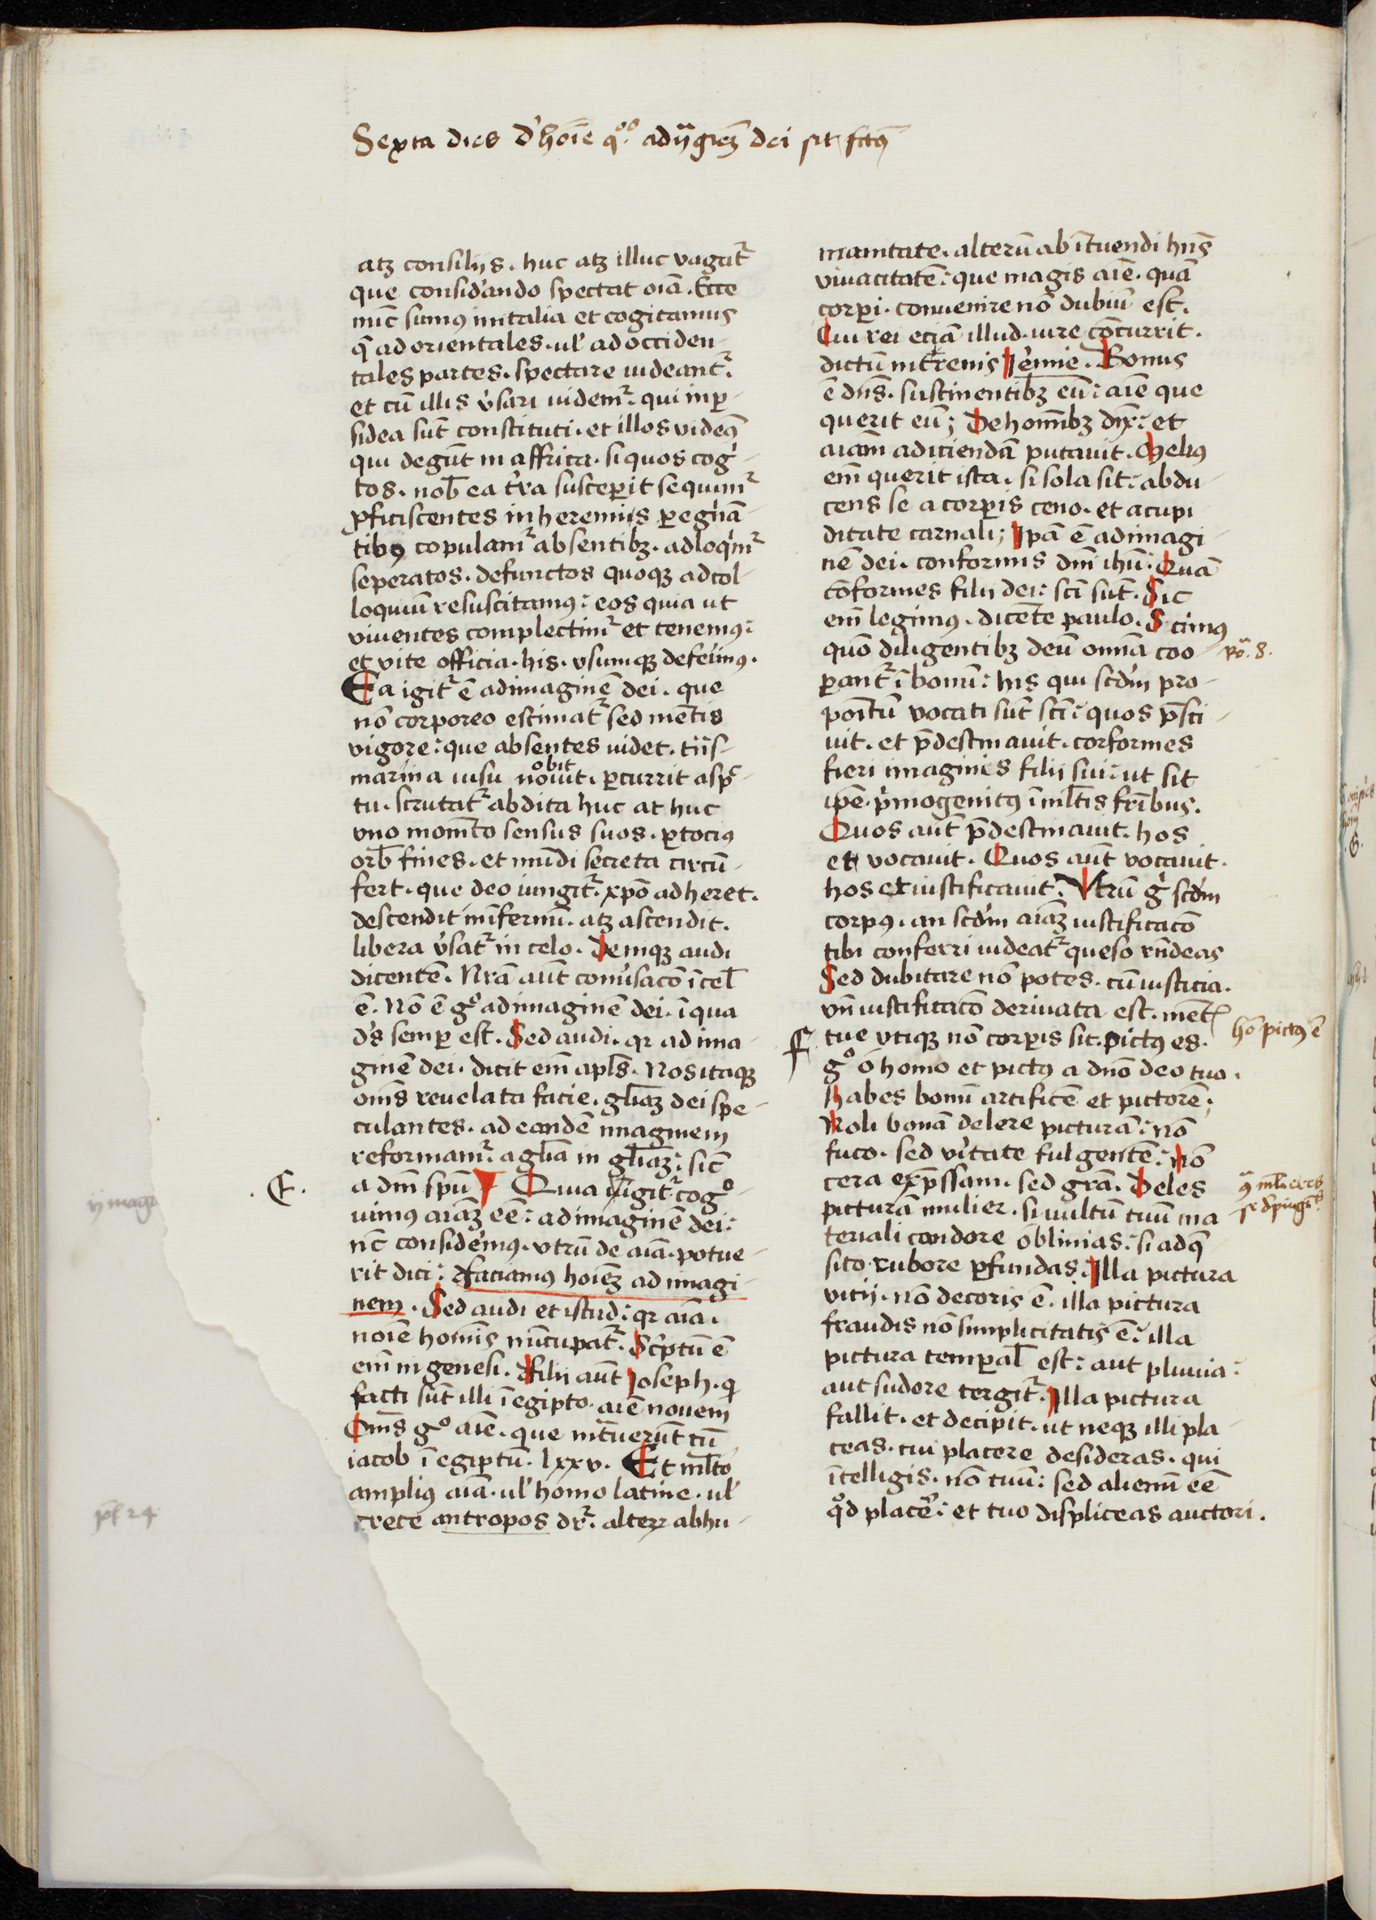 Sexta dies d' hoīe qͦoͦ ad ymgīeꝫ dei sit fctꝰ
atꝫ consilijs . huc atꝫ illuc vagat᷑
que consid'ando spectat oīa . Ecce
nūc sumꝰ in italia et cogitamus
q̄ ad orientales . ul' ad occiden-
tales partes . spectare uideant᷑.
et cū illis v'sari uidem᷑. qui in ꝑ-
sidea sūt constituti . et illos videmꝰ
qui degūt in affrica . si quos cog'
tos . nob̄ ea t'ra susceꝑit sequim᷑
ꝓficiscentes inheremus ꝑeg'nā
tibꝰ copulam᷑ absentibꝫ . adloq'm᷑
seperatos . defunctos quoqꝫ ad col-
loquiū resuscitamꝰ: eos quia ut
viuentes complectim᷑ et tenemꝰ:
et vite officia . his . vsumqꝫ defe'imꝰ.
Ea igit᷑ ē ad imaginē dei . que
nō corporeo estimat᷑ sed mentis
vigore: que absentes uidet . t͛ns-
marina uisu nouit obit . ꝑcurrit asp̄c-
tu . scrutat᷑ abdita huc at huc
vno momēto sensus suos . ꝑ tociꝰ
orb̄ fines . et mūdi secreta circū-
fert . que deo iungit᷑. xp̄o adheret.
descendit ī infernū . atꝫ ascendit.
libera v'sat᷑ in celo . Deniqꝫ audi
dicentē . Nr̄a aūt conu'sacō ī cel̄
ē . Nō ē gͦ ad imaginē dei . ī qua
d's semꝑ est . Sed audi . qr ad ima-
ginē dei . dicit em̄ apl̄s . Nos itaqꝫ
om̄s reuelata facie . gl̄iaꝫ dei spe-
culantes . ad eandē imaginem
reformam᷑. a gl̄ia in gl̄iaꝫ: sic̄
a dn̄i spū Quia igit᷑ cogͦ-
.E.
uimus aīaꝫ eē: ad imaginē dei:
nc̄ consid'emꝰ . vtrū de aīa . potue-
rit dici: Faciamꝰ hoīeꝫ ad imagi-
nem . Sed audi et istud: qr aīa .
noīe hom̄is nūcupat᷑. Sc'ptū ē
em̄ in genesi . Filij aūt Joseph . q̄
facti sūt illi ī egipto . aīe nouem
Om̄s gͦ aīe . que int᷑uerūt cū
iacob ī egiptū . lxxv . Et ml̄to
ampliꝰ aīa . ul' homo latine . ul'
grece antropos dr᷑. alteꝝ ab hu-
manitate . alterū ab ītuendi hn̄s
viuacitatē: que magis aīe . quā
corꝑi . conuenire nō dubiū est .
Cui rei eciā illud . iure concurrit .
dictū in trenis Jer'mie . Bonus
ē dn̄s . sustinentibꝫ eū: aīe que
querit eū; De hom̄ībꝫ dix̄: et
aīam adiciendā putauit . Meliꝰ
em̄ querit ista . si sola sit: abdu-
cens se a corꝑis ceno . et a cupi
ditate carnali; Ipā ē ad imagi-
nē dei . conformis dn̄i ih̄u: Quā
cōformes filij dei: sc̄i sūt . Sic
em̄ legimꝰ . dicēte paulo . Scimꝰ
quō diligentibꝫ deū omnīa coo-
Rō. 8.
ꝑant᷑ ī bonū: his qui scd'm pro-
poītū vocati sūt sc̄i: quos p̄sci-
uit . et p̄destinauit . corformes
fieri imaginis filij sui: ut sit
ip̄e p'mogenitꝰ ī ml̄tis fr̄ibus .
Quos aūt p̄destinauit . hos
et vocauit . Quos aūt vocauit .
hos et iustificauit . Vtrū g' scd'm
corpꝰ . an scd'm aīaꝫ iustificacō
tibi conferri uideat᷑ queso rn̄deas
Sed dubitare nō potes . cū iusticia .
vn̄ iustificacō deriuata est . ment̄
tue vtiqꝫ nō corꝑis sit . Pictꝰ es.
hō pictꝰ ē
F
gͦ ō homo et pictꝰ a dn̄o deo tuo .
habes bonū artificē et pictorē:
Noli bonā delere picturā: nō
fuco . sed v'itate fulgentē: nō
cera exp̄ssam . sed grā . Deles
picturā mulier . si uultū tuū ma
teriali candore oblinias: si adq̄-
sito rubore ꝑfundas . Illa pictura
vitij . nō decoris ē . illa pictura
fraudis nō simplicitatis ē: illa
pictura temꝑal̄ est: aut pluuia:
aut sudore tergit᷑. Illa pictura
fallit . et decipit . ut neqꝫ illi pla-
ceas . cui placere desideras . qui
ītelligis . nō tuū: sed alienū eē
qͦd place᷑: et tuo displiceas auctori .